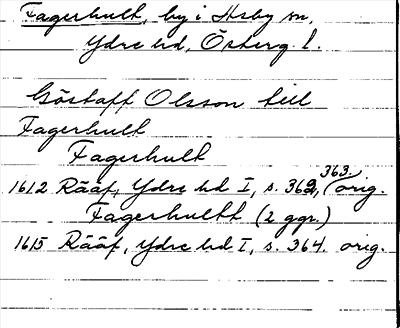 Fagerhult, by i Asby sn,
Ydre hd, Österg. l.
Göstaff Olsson till
Fagerhult
Fagerhult
1612 Rääf, Ydre hd I, s. 362, 363. orig.
Fagerhultt (2 ggr.)
1615 Rääf, Ydre hd I, s. 364. orig.